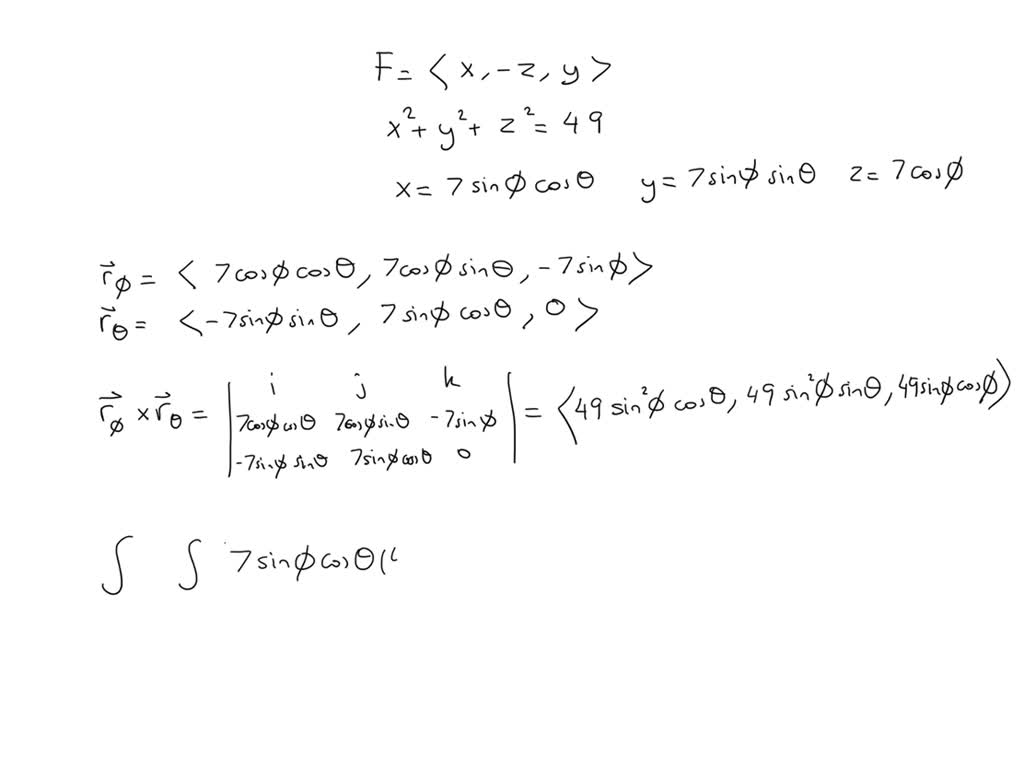 F = < x, -z, y >
x² + y² + z² = 49
x = 7 sinϕ cosθ y = 7 sinϕ sinθ z = 7 cosϕ
r⃗ϕ = < 7cosϕ cosθ, 7cosϕ sinθ, -7sinϕ >
r⃗θ = < -7sinϕ sinθ, 7 sinϕ cosθ, 0 >
i j k
r⃗ϕ × r⃗θ = | 7cosϕ cosθ 7cosϕ sinθ -7sinϕ | = < 49 sin²ϕ cosθ, 49 sin²ϕ sinθ, 49sinϕ cosϕ >
-7sinϕ sinθ 7sinϕ cosθ 0
∫ ∫ 7 sinϕ cosθ (